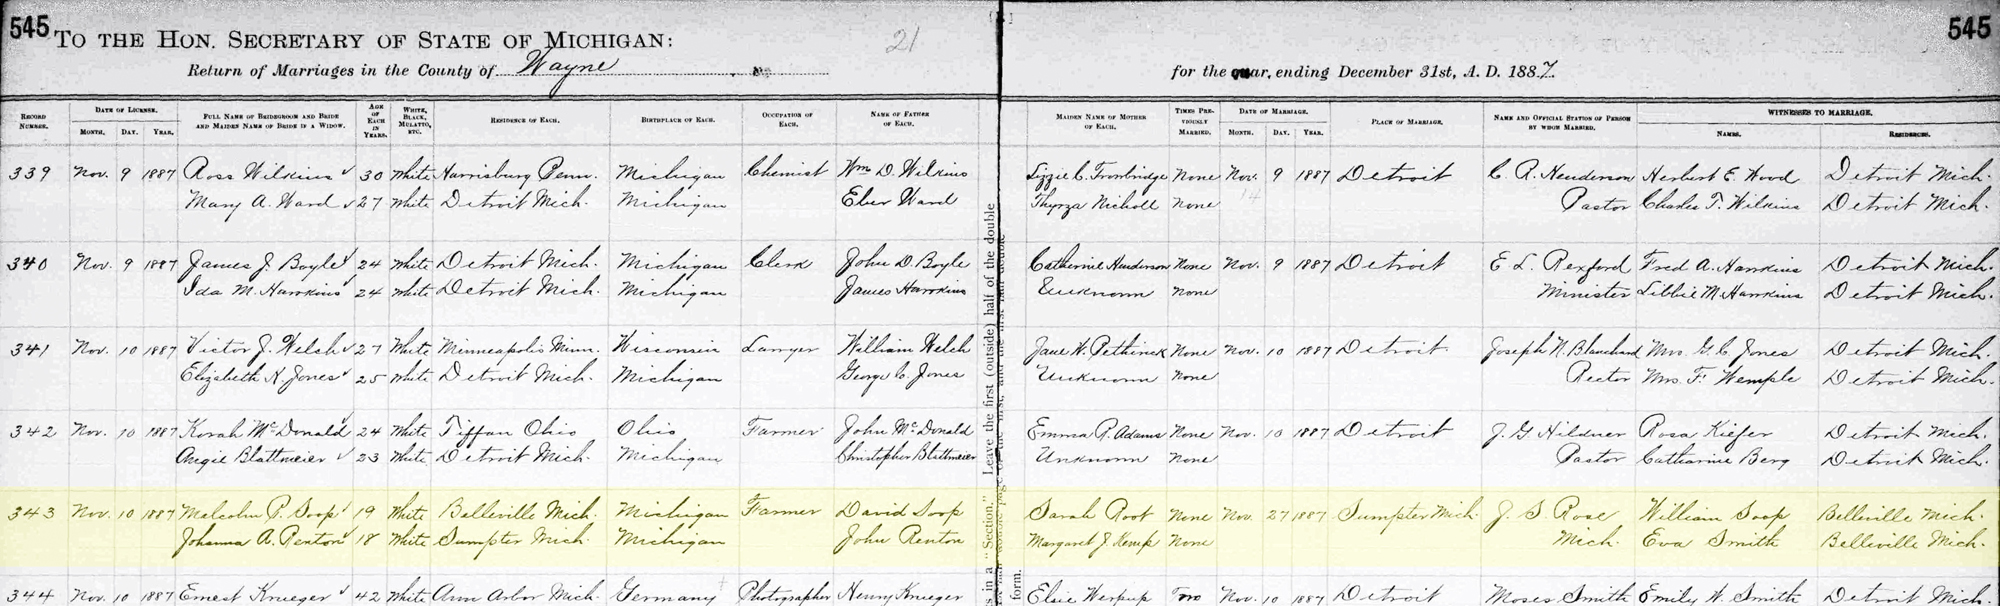 545 TO THE HON. SECRETARY OF STATE OF MICHIGAN: 21 545
Return of Marriages in the County of Wayne for the year, ending December 31st, A. D. 1887.
RECORD NUMBER. DATE OF LICENSE. MONTH. DAY. YEAR. FULL NAME OF BRIDEGROOM AND BRIDE AND MAIDEN NAME OF BRIDE IF A WIDOW. AGE OF EACH IN YEARS. WHITE, BLACK, MULATTO, ETC. RESIDENCE OF EACH. BIRTHPLACE OF EACH. OCCUPATION OF EACH. NAME OF FATHER OF EACH. MAIDEN NAME OF MOTHER OF EACH. TIMES PREVIOUSLY MARRIED. DATE OF MARRIAGE. MONTH. DAY. YEAR. PLACE OF MARRIAGE. NAME AND OFFICIAL STATION OF PERSON BY WHOM MARRIED. WITNESSES TO MARRIAGE. NAMES. RESIDENCES.
339 Nov. 9 1887 Ross Wilkins 30 White Harrisburg Penn. Michigan Chemist Wm D. Wilkins Lizzie C. Trowbridge None Nov. 9 1887 Detroit C. R. Henderson Herbert E. Wood Detroit Mich.
Mary A. Ward 27 White Detroit Mich. Michigan Eber Ward Thyrza Nicholl None Pastor Charles T. Wilkins Detroit Mich.
340 Nov. 9 1887 James J. Boyle 24 White Detroit Mich. Michigan Clerk John D. Boyle Catherine Henderson None Nov. 9 1887 Detroit E. L. Rexford Fred A. Hawkins Detroit Mich.
Ida M. Hawkins 24 White Detroit Mich. Michigan James Hawkins Unknown None Minister Libbie M. Hawkins Detroit Mich.
341 Nov. 10 1887 Victor J. Welch 27 White Minneapolis Minn. Wisconsin Lawyer William Welch Jane W. None Nov. 10 1887 Detroit Joseph N. Blanchard Mrs. G. C. Jones Detroit Mich.
Elizabeth N. Jones 25 White Detroit Mich. Michigan George C. Jones Unknown None Rector Mrs. F. Wemple Detroit Mich.
342 Nov. 10 1887 Korah McDonald 24 White Tiffan Ohio Ohio Farmer John McDonald Emma R. Adams None Nov. 10 1887 Detroit J. G. Hildner Rosa Kiefer Detroit Mich.
Angie Blattmeier 23 White Detroit Mich. Michigan Christopher Blattmeier Unknown None Pastor Catharine Berg Detroit Mich.
343 Nov. 10 1887 Malcolm P. Soop 19 White Belleville Mich. Michigan Farmer David Soop Sarah Root None Nov. 27 1887 Sumpter Mich. J. S. Rose William Soop Belleville Mich.
Johanna A. Renton 18 White Sumpter Mich. Michigan John Renton Margaret J. Kemp None Mich. Eva Smith Belleville Mich.
344 Nov. 10 1887 Ernest Krueger 42 White Ann Arbor Mich. Germany Photographer Henry Krueger Elsie Two Nov. 10 1887 Detroit Moses Smith Emily W. Smith Detroit Mich.
s in a "Section." Leave the first (outside) half of the double
form.